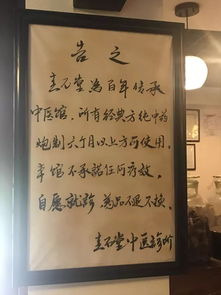 告之
壴石堂为百年传承
中医馆，所有经典方纯中药
炮制六个月以上方可使用。
本馆不承诺任何疗效，
自愿就诊，药品不退不换。
壴石堂中医诊所